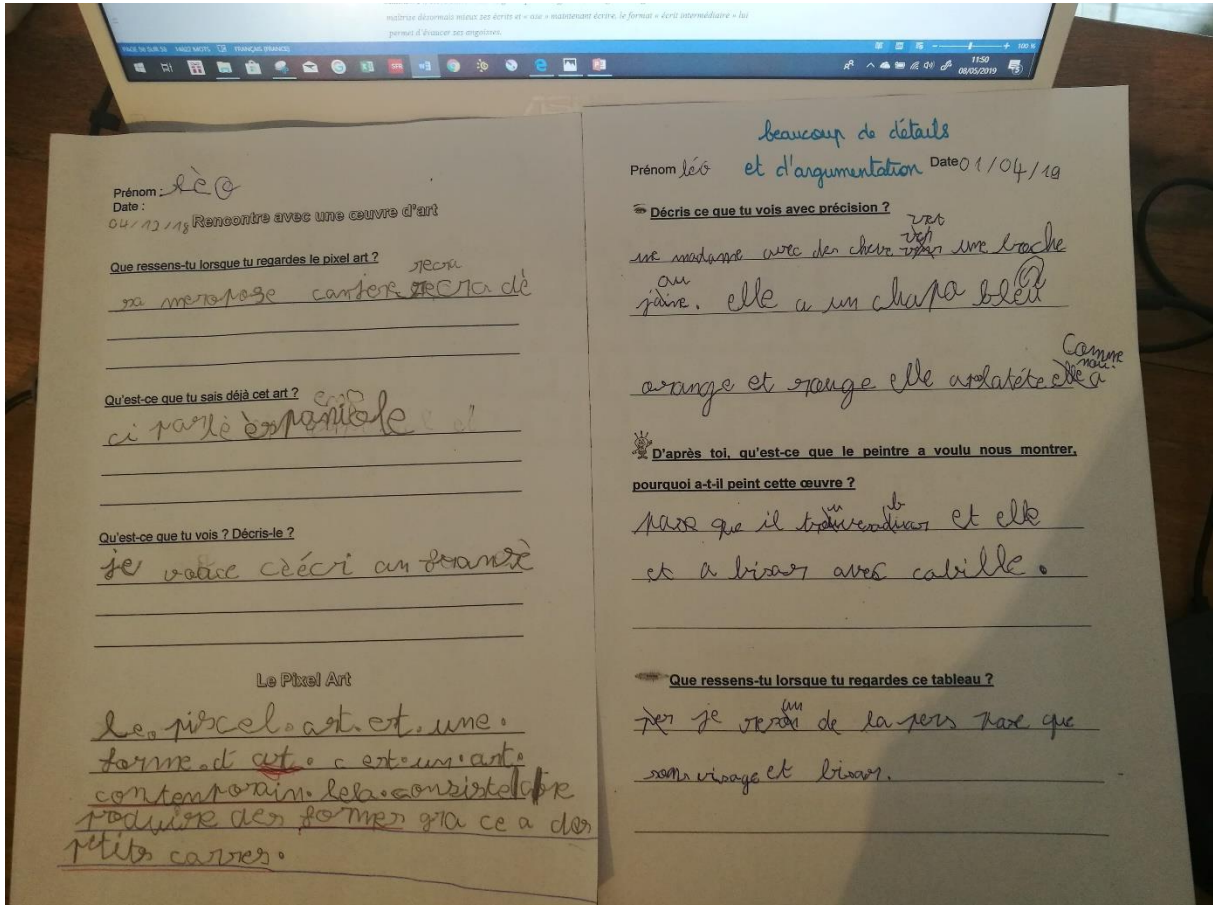 maîtrise désormais mieux ses écrits et « ose » maintenant écrire, le format « écrit intermédiaire » lui
permet d'évacuer ses angoisses.
FRANÇAIS (FRANCE)
100 %
11:50
08/05/2019
ASUS
Prénom : Lèo
Date :
04/12/18 Rencontre avec une œuvre d'art
Que ressens-tu lorsque tu regardes le pixel art ?
recra
sa meropose canjere recra dè
Qu'est-ce que tu sais déjà cet art ?
ci parlè èspaniole
Qu'est-ce que tu vois ? Décris-le ?
je voace cèècri an franzè
Le Pixel Art
le. piscel. art. est. une.
forme. d art. c est. un. art.
contenporain. lela. consiste a re
produire des formes gra ce a des
petits carres.
beaucoup de détails
et d'argumentation
Prénom léo Date 01/04/19
Décris ce que tu vois avec précision ?
vert
une madame avec des cheve une broche
au
jaine. elle a un chapo bleu
Comme
noir.
orange et rouge elle aplatéte elle a
D'après toi, qu'est-ce que le peintre a voulu nous montrer,
pourquoi a-t-il peint cette œuvre ?
parx que il et elle
et a bisar avec cabille.
Que ressens-tu lorsque tu regardes ce tableau ?
je de la pers parx que
son visage et bisar.